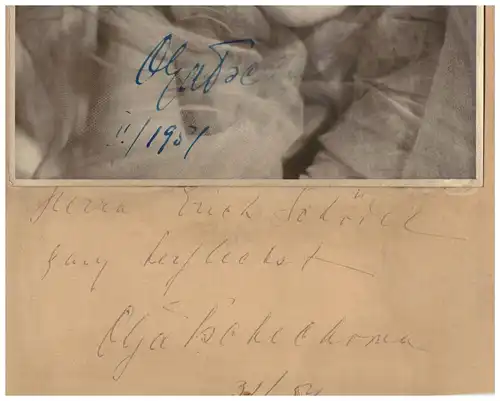 Olga Tsc
II/1951
Herrn Erich Schöol
ganz herzlichst
Olga Tschechowa